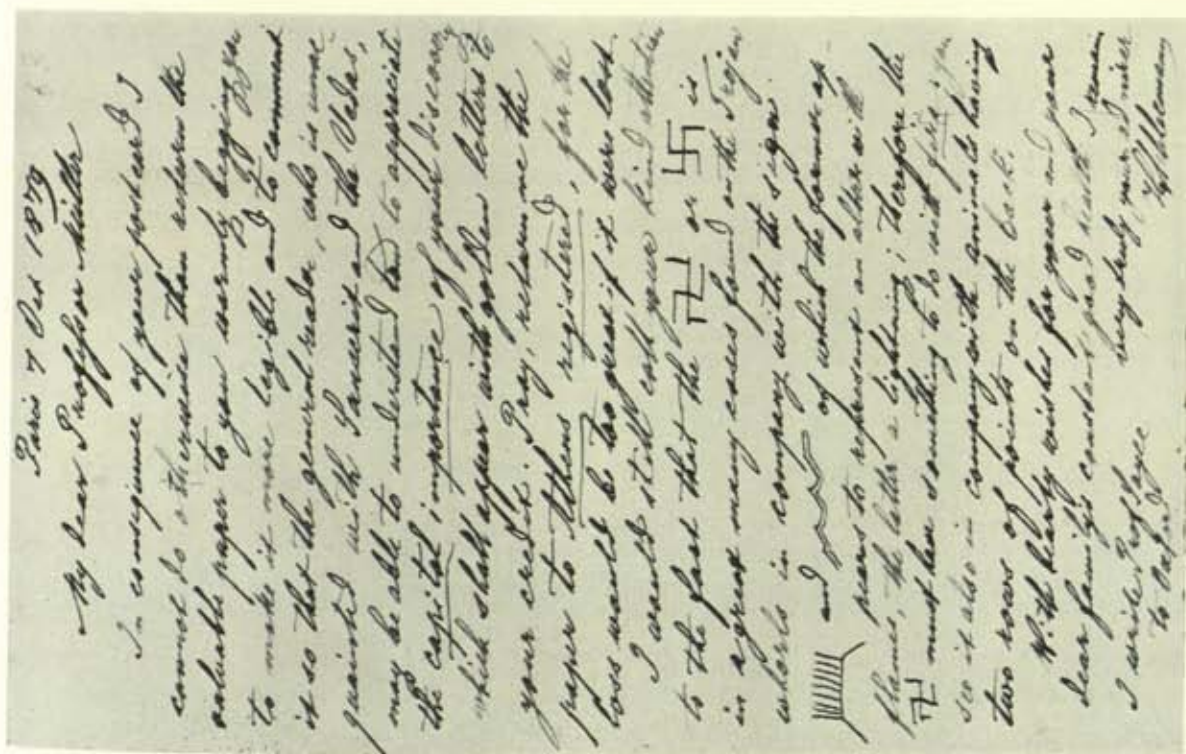 Paris 7 Oct 1879
My dear Professor Müller
In consequence of your postcard I
cannot do otherwise than return the
valuable paper to you warmly begging you
to make it more legible and to comment
it so that the general reader, who is unac
quainted with Sanscrit and the Vedas,
may be able to understand and to appreciate
the capital importance of your discovery
which shall appear with golden letters to
your credit. Pray, return me the
paper to Athens registered, for the
loss would be too great if it were lost.
I would still call your kind attention
to the fact that the 卍 or 卐 is
in a great many cases found on the Trojan
whorls in company with the sign
and of which the former ap-
pears to represent an altar with
flames, the latter a lightning; therefore the
卐 must have something to do with fire; you
see it also in company with animals having
two rows of points on the back.
With hearty wishes for your and your
dear family's constant good health I remain
I write Prof Sayce very truly yours
to Oxford Schliemann